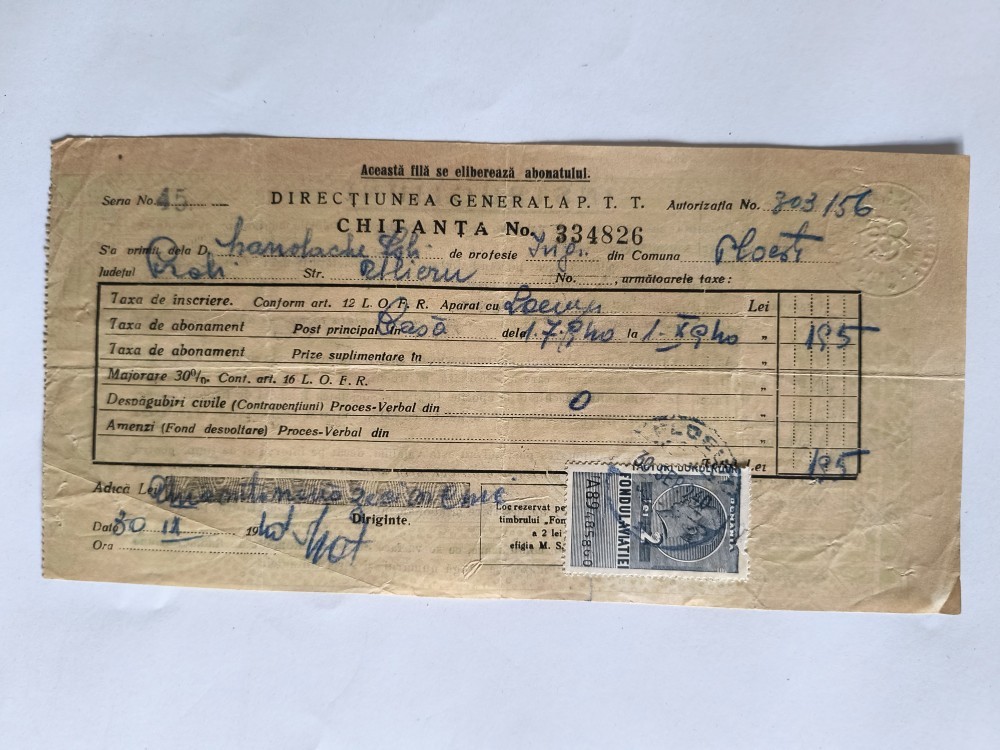 Această filă se eliberează abonatului.
Seria No. 45. DIRECȚIUNEA GENERALA P. T. T. Autorizația No. 303/56
CHITANȚA No. 334826
S'a primit dela D. de profesie Ing. din Comuna Ploești
Județul Str. No. , următoarele taxe:
Taxa de înscriere. Conform art. 12 L. O. F. R. Aparat cu Lei
Taxa de abonament Post principal Casă dela 1.7 la 1. 195
Taxa de abonament Prize suplimentare în "
Majorare 30%. Cont. art. 16 L. O. F. R. "
Despăgubiri civile (Contravențiuni) Proces-Verbal din 0 "
Amenzi (Fond desvoltare) Proces-Verbal din "
Lei 195
Adică Lei
Diriginte.
Data 30 IX 1940
Ora
Loc rezervat
timbrului „Fon
a 2 lei
efigia M. S.
A89785860
FONDUL AVIAȚIEI
LEI 2
ROMANIA